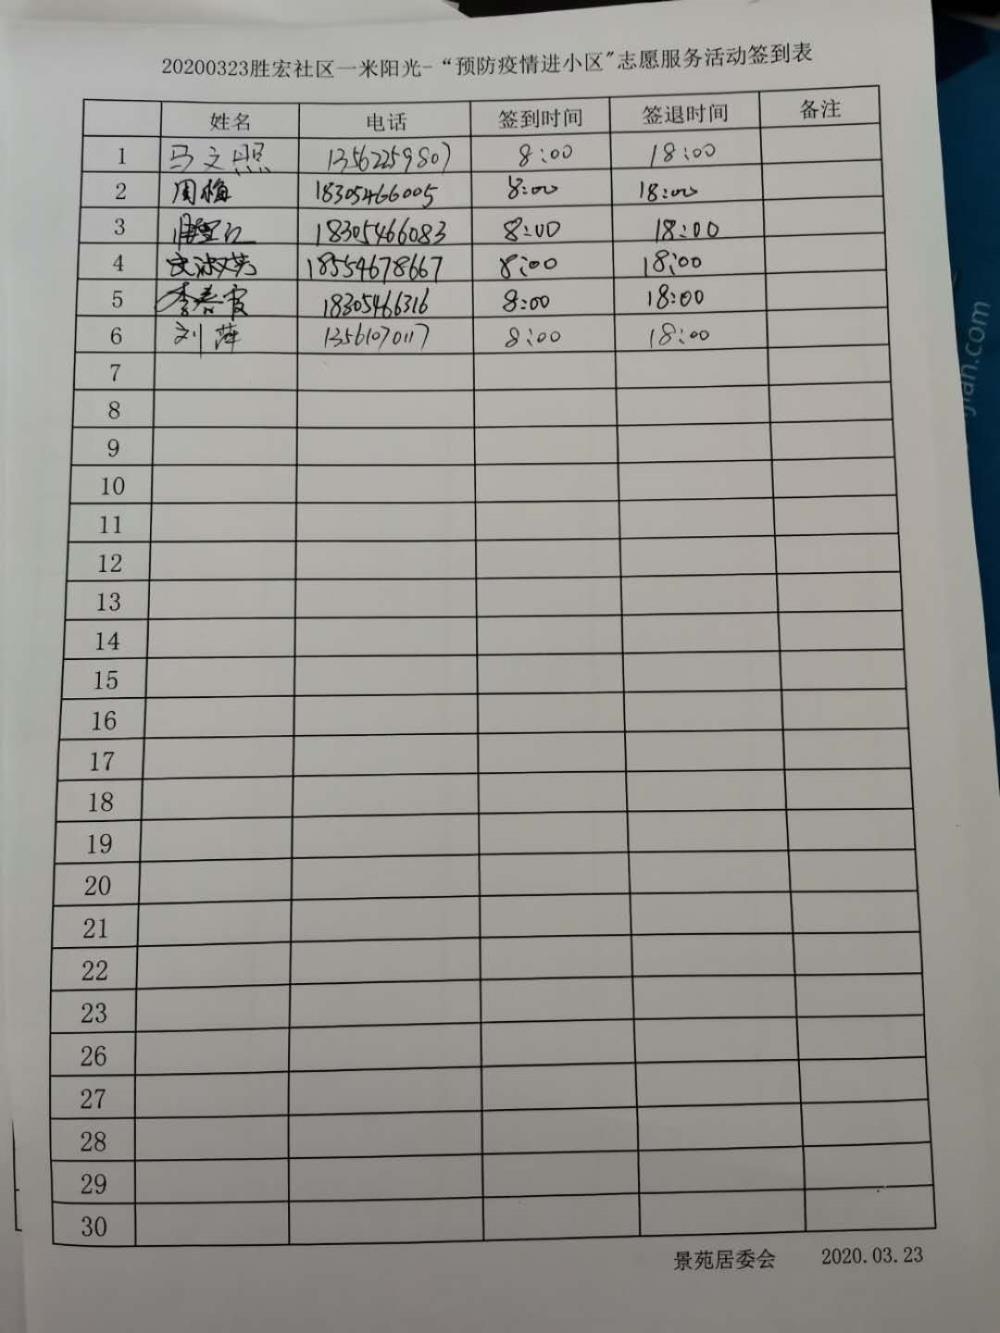 20200323胜宏社区一米阳光-“预防疫情进小区"志愿服务活动签到表
姓名 电话 签到时间 签退时间 备注
1 马文照 13562259807 8:00 18:00
2 周梅 18305466005 8:00 18:00
3 18305466083 8:00 18:00
4 18554678667 8:00 18:00
5 李春霞 18305466316 8:00 18:00
6 刘萍 13561070117 8:00 18:00
7
8
9
10
11
12
13
14
15
16
17
18
19
20
21
22
23
26
27
28
29
30
景苑居委会 2020.03.23
jian.com